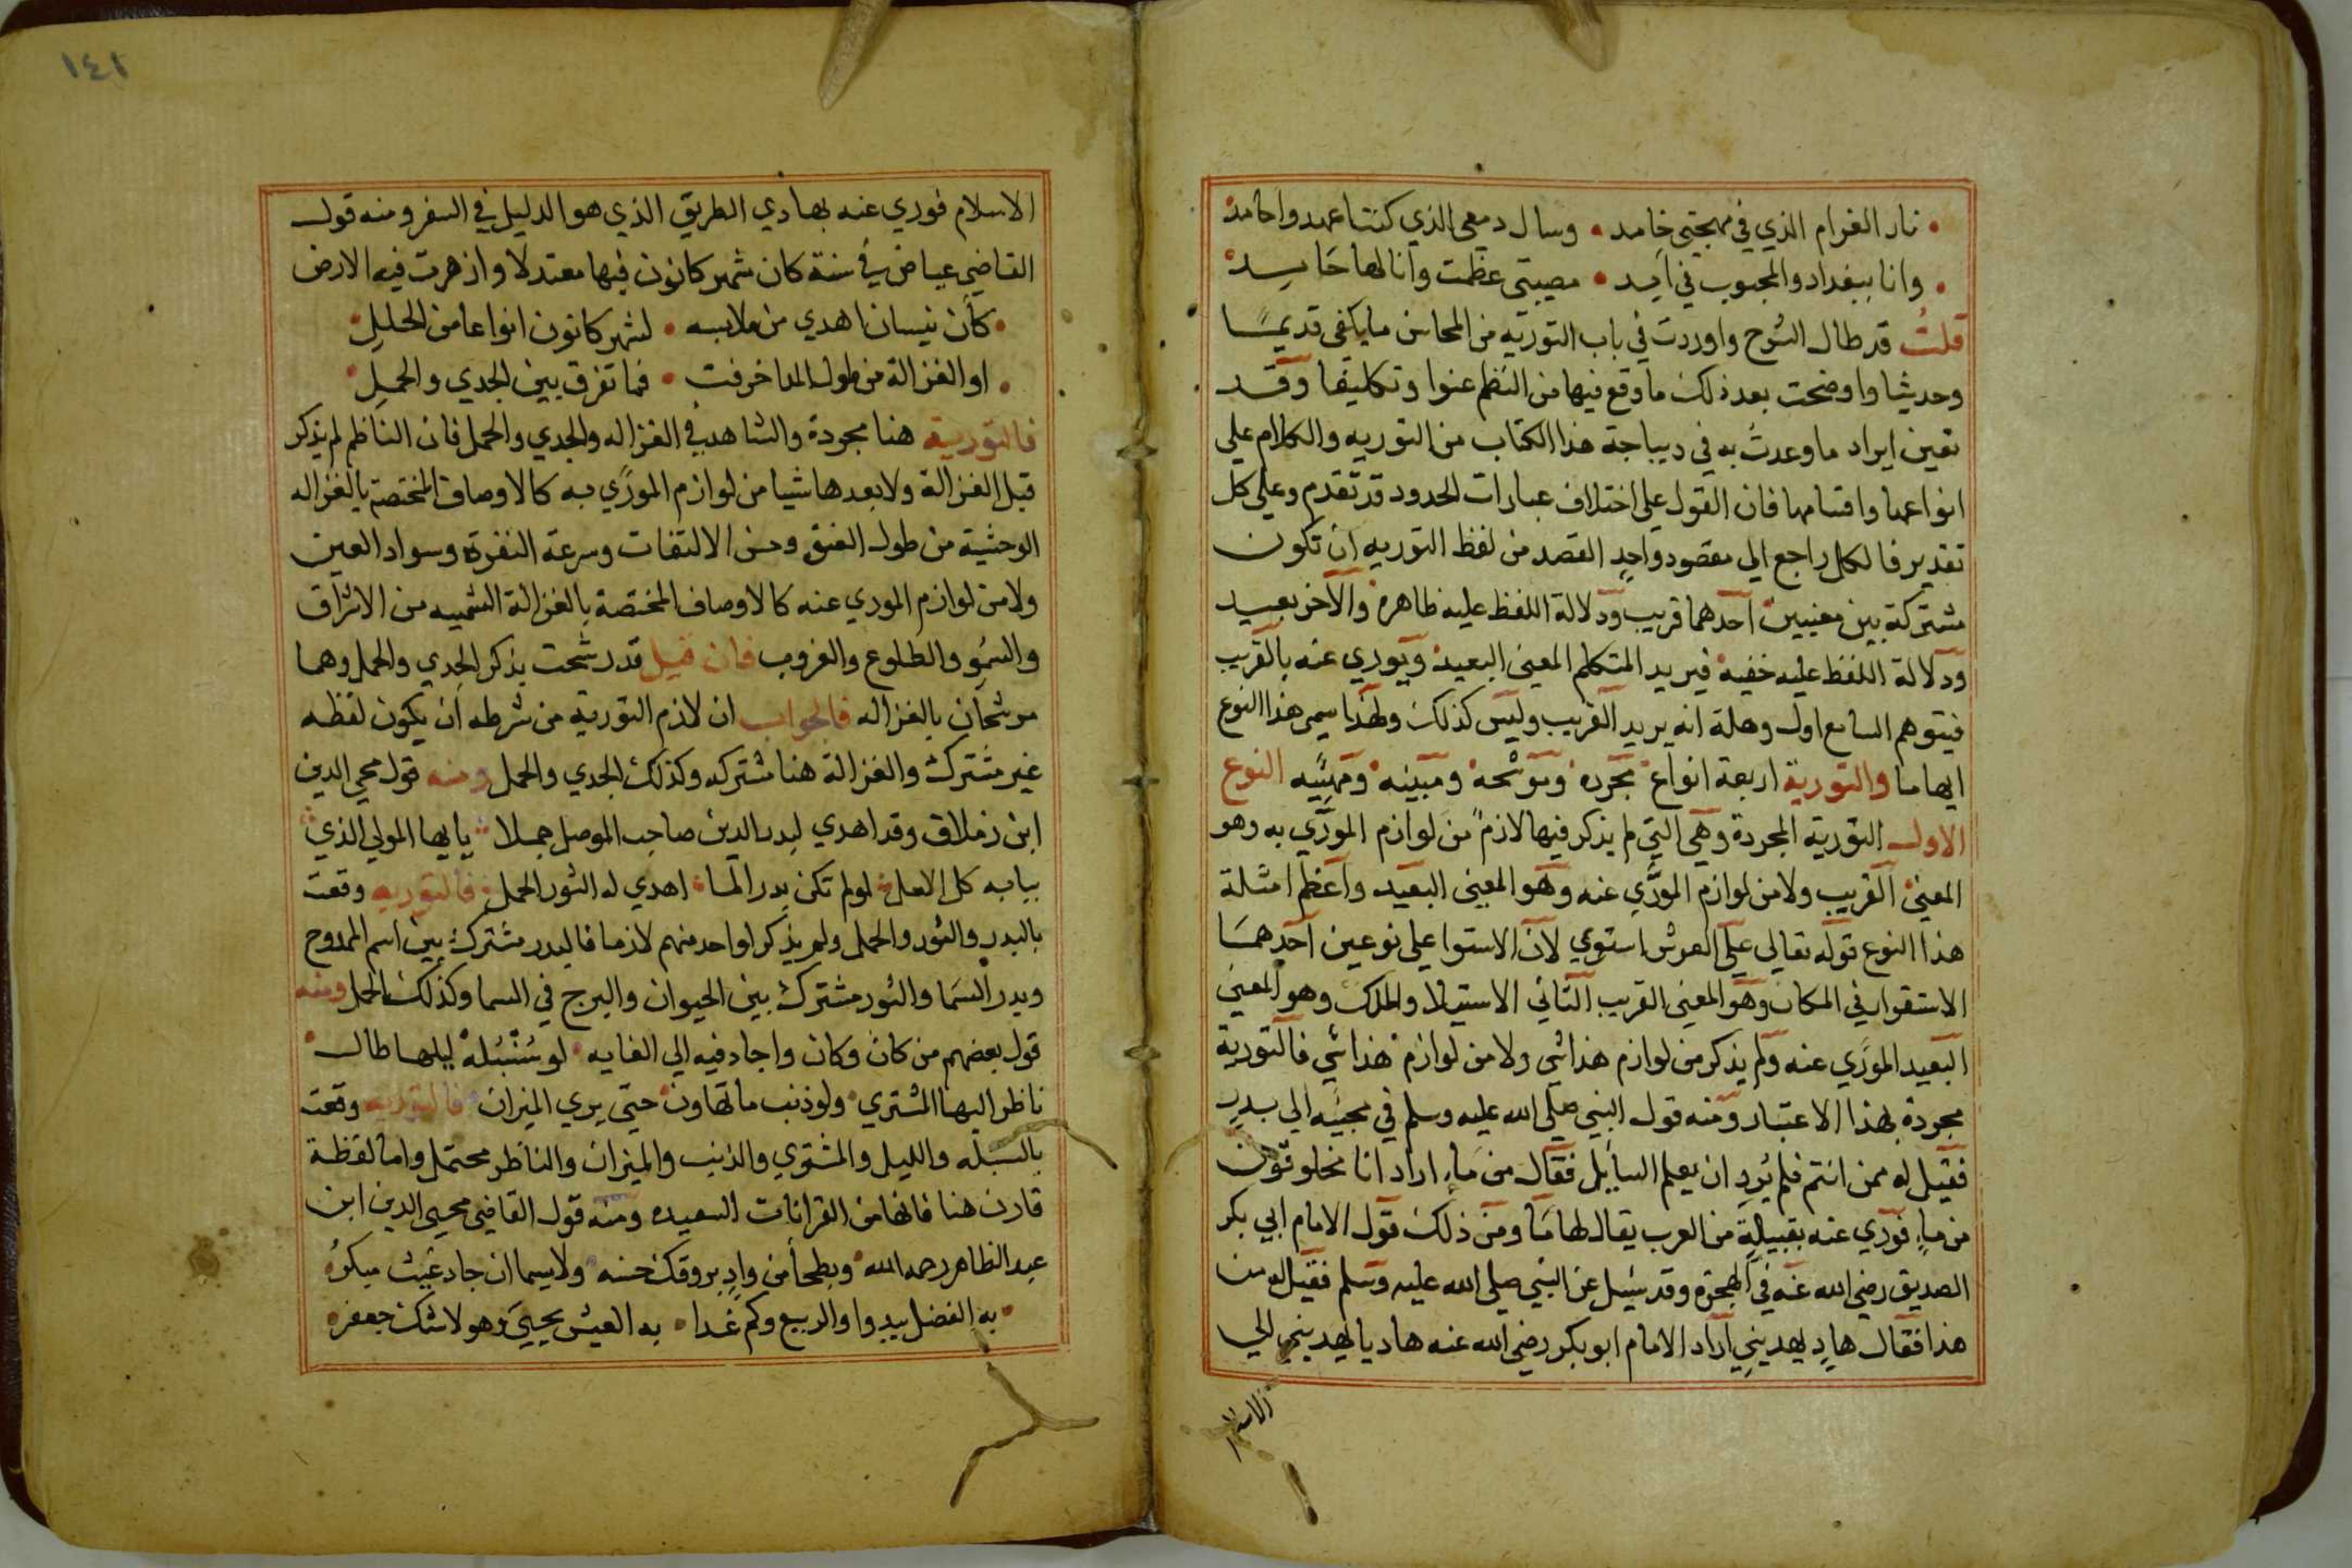 نار الغرام الذي في مهجتي خامد • وسال دمعي الذي كنت اعهدو اجامد
• وانا ببغداد والمحبوب في آمد • مصيبتي عظمت وانا لها حامد
قلت قد طال الشرح واوردت في باب التورية من المحاسن ما يكفي قديمًا
وحديثا واوضحت بعد ذلك ما وقع فيها من النظم عنوا وتكليفا وقد
تعين ايراد ما وعدت به في ديباجة هذا الكتاب من التوريه والكلام علي
انواعها واقسامها فان القول علي اختلاف عبارات الحدود قد تقدم وعلي كل
تقدير فالكل راجع الي مقصود واحدٍ القصد من لفظ التوريه ان تكون
مشتركة بين معنيين احدهما قريب ودلالة اللفظ عليه ظاهرة والآخر بعيد
ودلالة اللفظ عليه خفية فيريد المتكلم المعني البعيد ويوري عنه بالقريب
فيتوهم السامع اول وهلة انه يريد القريب وليس كذلك ولهذا سمي هذا النوع
ايهاما والتورية اربعة انواع مجرده ومرشحة ومبينه ومهيّيه النوع
الاول التورية المجردة وهي التي لم يذكر فيها لازمٌ من لوازم المورّي به وهو
المعني القريب ولا من لوازم المورّي عنه وهو المعني البعيد واعظم امثلة
هذا النوع قوله تعالي علي العرش استوي لان الاستوا علي نوعين احدهما
الاستقرار في المكان وهو المعني القريب الثاني الاستيلا والملك وهو المعني
البعيد المورّي عنه ولم يذكر من لوازم هذا شي ولا من لوازم هذا شي فالتورية
مجردة بهذا الاعتبار ومنه قول النبي صلي الله عليه وسلم في مجيّه الي بدر
فقيل له ممن انتم فلم يُردِ ان يعلم السايل فقال من ماءٍ اراد انا مخلوقون
من ماءٍ فورّي عنه بقبيلةٍ من العرب يقال لها ما ومن ذلك قول الامام ابي بكر
الصديق رضي الله عنه في الهجرة وقد سُيل عن النبي صلي الله عليه وسلم فقيل له من
هذا فقال هادٍ يهديني اراد الامام ابو بكر رضي الله عنه هاديا يهديني الي
الاسلام
١٤١
الاسلام فوري عنه بهادي الطريق الذي هو الدليل في السفر ومنه قول
القاضي عياض في سنة كان شهر كانون فيها معتدلا وازهرت فيه الارض
• كأن نيسان اهدي من ملابسه • لشهر كانون انواعا من الحلل •
• او الغزالة من طول المدا خرفت • فما تفرق بين الجدي والحمل •
فالتورية هنا مجردة والشاهد في الغزاله والجدي والحمل فان الناظم لم يذكر
قبل الغزالة ولا بعدها شيا من لوازم المورّي به كالاوصاف المختصة بالغزاله
الوحشية من طول العنق وحسن الالتفات وسرعة النفرة وسواد العين
ولا من لوازم الموري عنه كالاوصاف المختصة بالغزالة الشمسيه من الاشراق
والسمُو والطلوع والغروب فان قيل قد رشحت بذكر الجدي والحمل وهما
مرشحان بالغزاله فالجواب ان لازم التورية من شرطه ان يكون لفظه
غير مشترك والغزالة هنا مشتركه وكذلك الجدي والحمل ومنه قول محيي الدين
ابن زملاق وقد اهدي لبدر الدين صاحب الموصل جملا يا يها المولي الذي
ببابه كل الامل لو لم تكن بدر السما اهدي له الثور الحمل فالتوريه وقعت
بالبدر والثور والحمل ولم يذكر لواحد منهم لازما فالبدر مشترك بين اسم الممدوح
وبدر السما والثور مشترك بين الحيوان والبرج في السما وكذلك الحمل ومنه
قول بعضهم من كان وكان واجاد فيه الي الغايه لو سُنبُلهْ ليلها طال
ناظر اليها المشتري ولو ذنب ما تهاون حتي يري الميزان فالتوريه وقعت
بالسبله والليل والمشتري والذنب والميزان والناظر محتمل واما لفظة
قارن هنا فانها من القرانات السعيده ومنه قول القاضي محيي الدين ابن
عبد الظاهر رحمه الله وبطحأ من وادٍ يروقك حسنه ولا سيما ان جاد غيث مبكرُ
• به الفضل يبدوا والربيع وكم غدا • به العيش يحيي وهو لا شك جعفر •